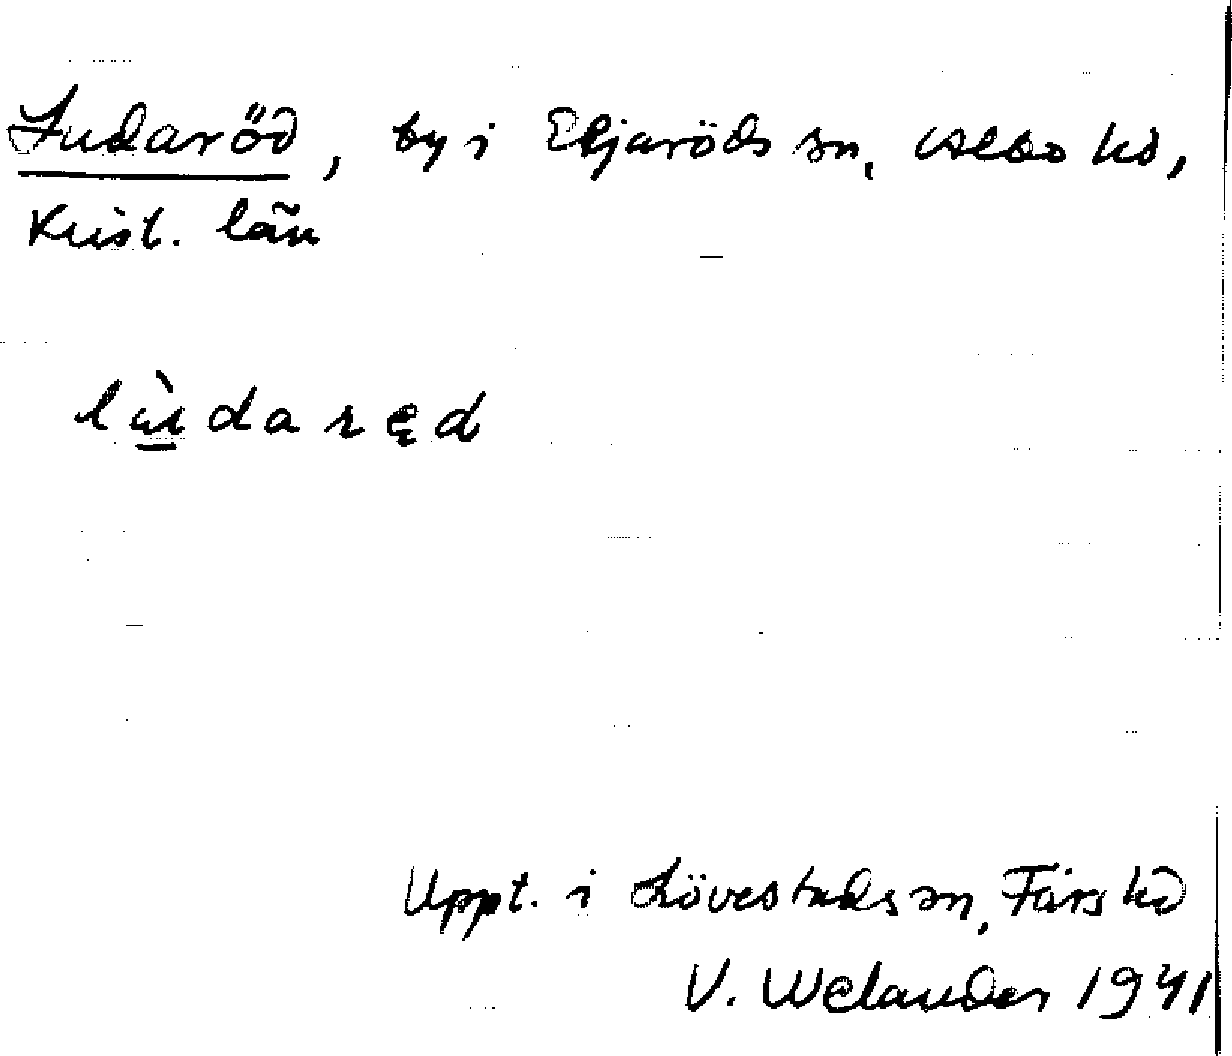 Ludaröd, by i Eljaröds sn, Albo hd,
Krist. län
lùdaręd
Uppt. i Lövestads sn, Färs hd
V. Welander 1941